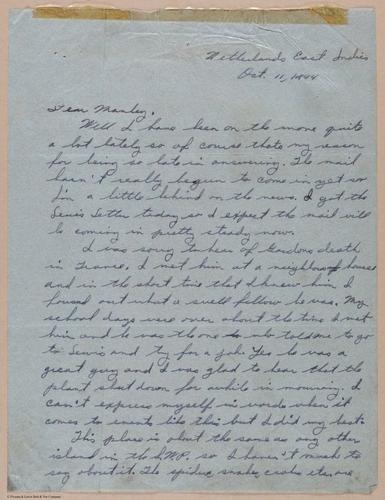 Netherlands East Indies
Oct. 11, 1944
Dear Manley,
Well I have been on the move quite
a bit lately so of course thats my reason
for being so late in answering. The mail
hasn't really begun to come in yet so
I'm a little behind on the news. I got the
Lewis Letter today so I expect the mail will
be coming in pretty steady now.
I was sorry to hear of Gordons death
in France. I met him at a neighbors house
and in the short time that I knew him I
found out what a swell fellow he was. My
school days were over about the time I met
him and he was the one who told me to go
to Lewis and try for a job. Yes he was a
great guy and I was glad to hear that the
plant shut down for awhile in mourning. I
can't express myself in words when it
comes to events like this but I did my best.
This place is about the same as any other
island in the S.W.P. so I haven't much to
say about it. The spiders, snakes, crabs etc. are